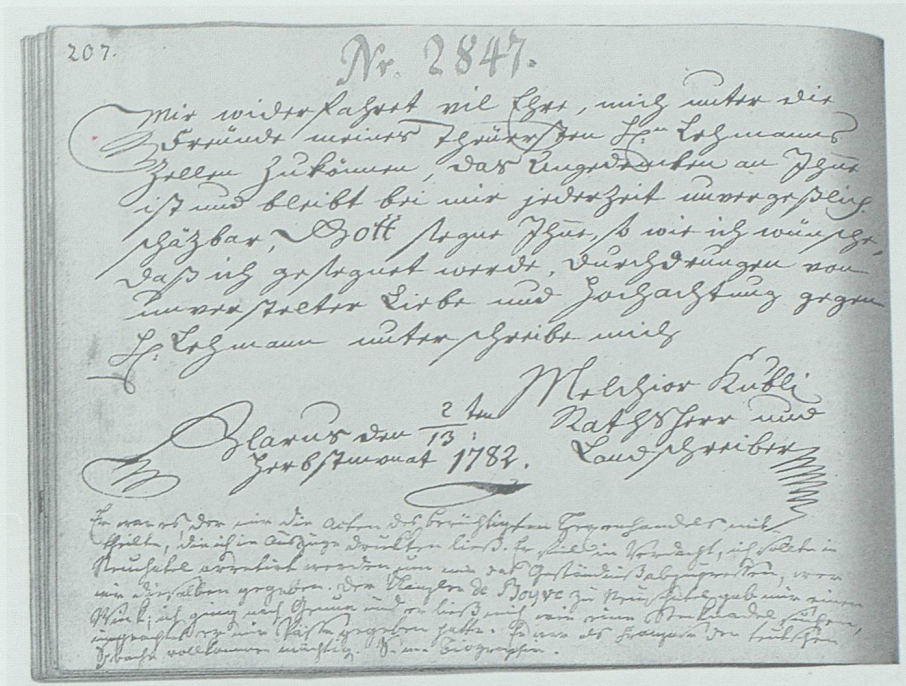 207.
Nr. 2847.
Mir widerfahret vil Ehre, mich unter die
Freünde meines Theüersten Hrn Lehmanns
Zellen zukönnen, das Angedencken an Ihne
ist und bleibt bei mir jederzeit unvergeßlich
schäzbar, Gott segne Ihne, so wie ich wünsche,
daß ich gesegnet werde, Durchdrungen von
unverstelter Liebe und Hochachtung gegen
H. Lehmann unterschreibe mich
Melchior Kubli
Glarus den 2/13 ten Rathsherr und
Herbstmonat 1782. Landschreiber
Er war es der mir die Acten des berüchtigten Hexenhandels mit
theilte, die ich im Auszuge drukken ließ. Er fiel in Verdacht, ich sollte in
Neuchatel arretirt werden um mir das Geständniß abzupressen, wer
mir dieselben gegeben. Der Kanzler de Boyve zu Neuchatel gab mir einen
Wink; ich ging nach und er ließ mich wie eine Stecknadel suchen,
ungeachtet er mir Pässe gegeben hatte. Er war als der teutschen
Sprache vollkommen mächtig.